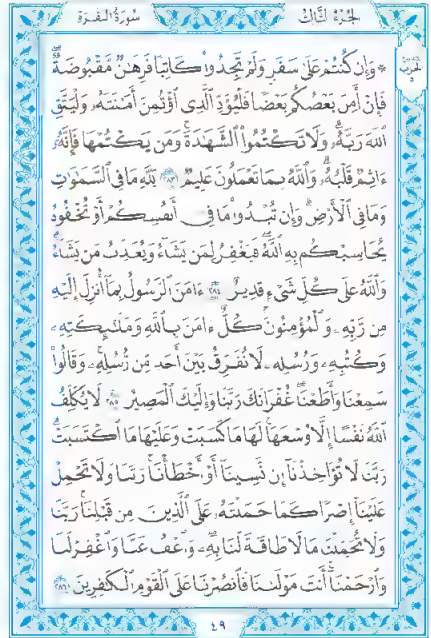 الجزء الثالث
سورة البقرة
الحزب
٥
۞ وَإِن كُنتُمْ عَلَىٰ سَفَرٍ وَلَمْ تَجِدُوا۟ كَاتِبًا فَرِهَـٰنٌ مَّقْبُوضَةٌ
فَإِنْ أَمِنَ بَعْضُكُم بَعْضًا فَلْيُؤَدِّ ٱلَّذِى ٱؤْتُمِنَ أَمَـٰنَتَهُۥ وَلْيَتَّقِ
ٱللَّهَ رَبَّهُۥ وَلَا تَكْتُمُوا۟ ٱلشَّهَـٰدَةَ وَمَن يَكْتُمْهَا فَإِنَّهُۥٓ
ءَاثِمٌ قَلْبُهُۥ وَٱللَّهُ بِمَا تَعْمَلُونَ عَلِيمٌ ٢٨٣ لِّلَّهِ مَا فِى ٱلسَّمَـٰوَٰتِ
وَمَا فِى ٱلْأَرْضِ وَإِن تُبْدُوا۟ مَا فِىٓ أَنفُسِكُمْ أَوْ تُخْفُوهُ
يُحَاسِبْكُم بِهِ ٱللَّهُ فَيَغْفِرُ لِمَن يَشَآءُ وَيُعَذِّبُ مَن يَشَآءُ
وَٱللَّهُ عَلَىٰ كُلِّ شَىْءٍ قَدِيرٌ ٢٨٤ ءَامَنَ ٱلرَّسُولُ بِمَآ أُنزِلَ إِلَيْهِ
مِن رَّبِّهِۦ وَٱلْمُؤْمِنُونَ كُلٌّ ءَامَنَ بِٱللَّهِ وَمَلَـٰٓئِكَتِهِۦ
وَكُتُبِهِۦ وَرُسُلِهِۦ لَا نُفَرِّقُ بَيْنَ أَحَدٍ مِّن رُّسُلِهِۦ وَقَالُوا۟
سَمِعْنَا وَأَطَعْنَا غُفْرَانَكَ رَبَّنَا وَإِلَيْكَ ٱلْمَصِيرُ ٢٨٥ لَا يُكَلِّفُ
ٱللَّهُ نَفْسًا إِلَّا وُسْعَهَا لَهَا مَا كَسَبَتْ وَعَلَيْهَا مَا ٱكْتَسَبَتْ
رَبَّنَا لَا تُؤَاخِذْنَآ إِن نَّسِينَآ أَوْ أَخْطَأْنَا رَبَّنَا وَلَا تَحْمِلْ
عَلَيْنَآ إِصْرًا كَمَا حَمَلْتَهُۥ عَلَى ٱلَّذِينَ مِن قَبْلِنَا رَبَّنَا
وَلَا تُحَمِّلْنَا مَا لَا طَاقَةَ لَنَا بِهِۦ وَٱعْفُ عَنَّا وَٱغْفِرْ لَنَا
وَٱرْحَمْنَآ أَنتَ مَوْلَىٰنَا فَٱنصُرْنَا عَلَى ٱلْقَوْمِ ٱلْكَـٰفِرِينَ ٢٨٦
٤٩